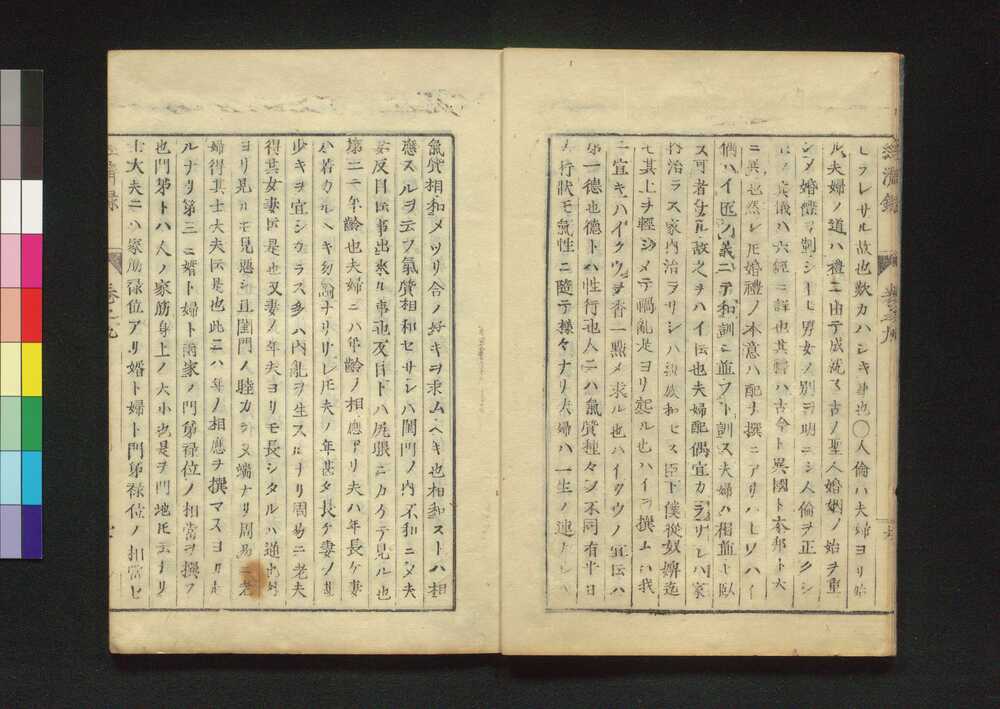 経済録
巻之九
ヒラレサル故也歎カハシキ事也〇人倫ハ夫婦ヨリ始
ル夫婦ノ道ハ禮ニ由テ成就ス古ノ聖人婚姻ノ始ヲ重
シメ婚禮ヲ制シ玉ヒ男女ノ別ヲ明ニシ人倫ヲ正クシ
其儀ハ六經ニ詳也其禮ハ古今ト異國ト本邦ト大
ニ異也然レ𪜈婚禮ノ本意ハ配ヲ撰ニアリハヒソハイ
偶ハイ匹ノ義ニテ和訓ニ並フト訓ス夫婦ハ相並ヒ臥
ス可者ナル故之ヲハイ伝也夫婦配偶宜カラサレハ家
治ラス家內治ラサレハ親族和セス臣下僕從奴婢迄
モ其上ヲ輕シメテ禍亂是ヨリ起ル也ハイヲ撰ムハ我
ニ宜キハイクウヲ香一點メ求ル也ハイクウノ宜伝ハ
第一德也德トハ性行也人ニハ氣質種々ノ不同有平日
行狀モ氣性ニ隨テ樣々ナリ夫婦ハ一生ノ連
氣質相和メツリ合ノ好キヲ求ムヘキ也相和ストハ相
應スルヲ云フ氣質相和セサレハ閨門ノ內不和ニメ夫
妻反目𪜈事出來ル事也反目トハ尻眼ニカケテ見ル也
第二ニ年齡也夫婦ニハ年齡ノ相應アリ夫ハ年長ケ妻
ハ若カルヘキ勿論ナリサレ𪜈夫ノ年甚タ長ケ妻ノ甚
少キヲ宜シカラス多ハ內亂ヲ生スルナリ周易ニ老夫
得其女妻𪜈是也又妻ノ年夫ヨリモ長シタルハ逆也
ヨリ見ルモ見惡シ且閨門ノ睦カラヌ端ナリ周易ニ老
婦得其士夫𪜈是也此ニハ年ノ相應ヲ撰マスヨリ
ルナリ第三ニ婿ト婦ト兩家ノ門第祿位ノ相當ヲ撰フ
也門第トハ人ノ家筋身上ノ大小也是ヲ門地𪜈云ナリ
士大夫ニハ家筋祿位アリ婿ト婦ト門第祿位ノ相當ヒ
経済録
巻之九